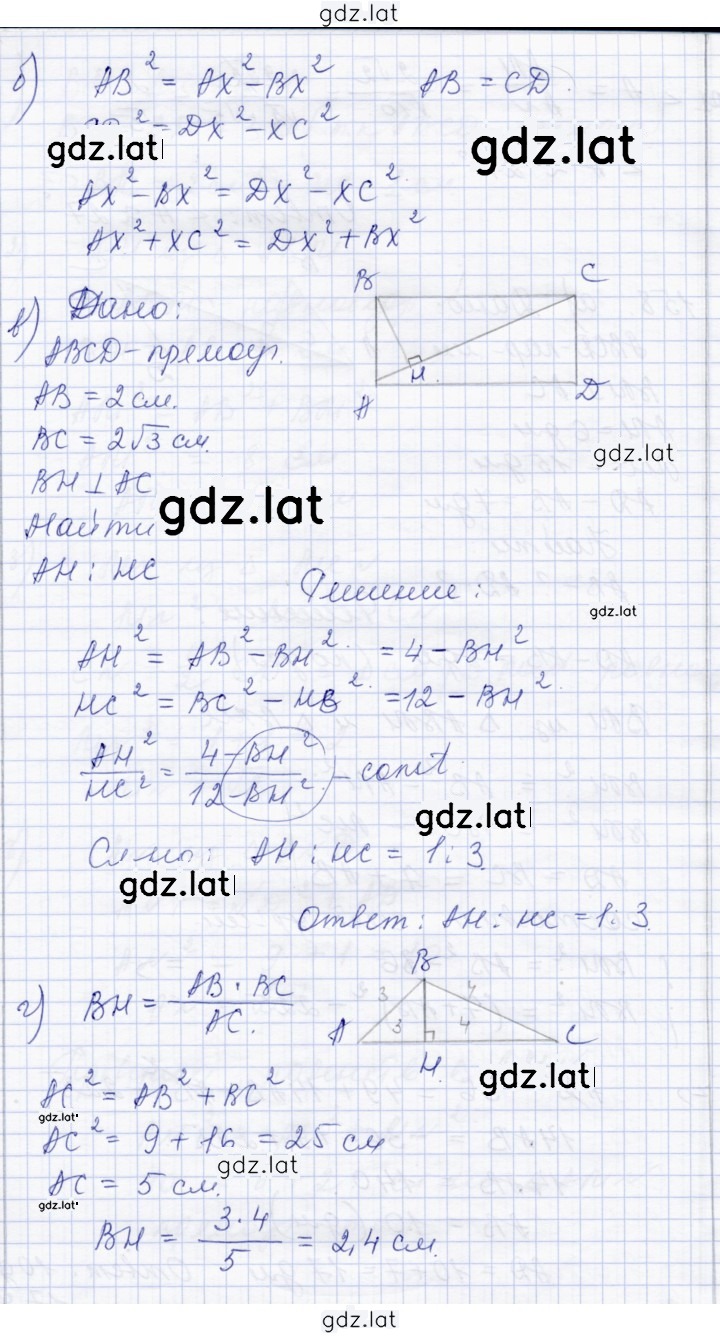 gdz.lat
б) AB² = AX² - BX² AB = CD.
² = DX² - XC²
gdz.lat gdz.lat
AX² - BX² = DX² - XC²
AX² + XC² = DX² + BX²
B C
в) Дано:
ABCD - прямоуг.
H.
AB = 2 см.
A D
BC = 2√3 см.
gdz.lat
BH ⊥ AC
gdz.lat
Найти
AH : HC
Решение:
gdz.lat
AH² = AB² - BH² = 4 - BH²
HC² = BC² - HB² = 12 - BH²
AH²/HC² = (4 - BH²)/(12 - BH²) - const
gdz.lat
AH : HC = 1 : 3.
gdz.lat
Ответ: AH : HC = 1 : 3.
B
г) BH = AB · BC / AC.
3 4
A 3 4 C
H.
gdz.lat
AC² = AB² + BC²
gdz.lat
AC² = 9 + 16 = 25 см
gdz.lat
AC = 5 см.
gdz.lat
BH = 3·4/5 = 2,4 см.
gdz.lat